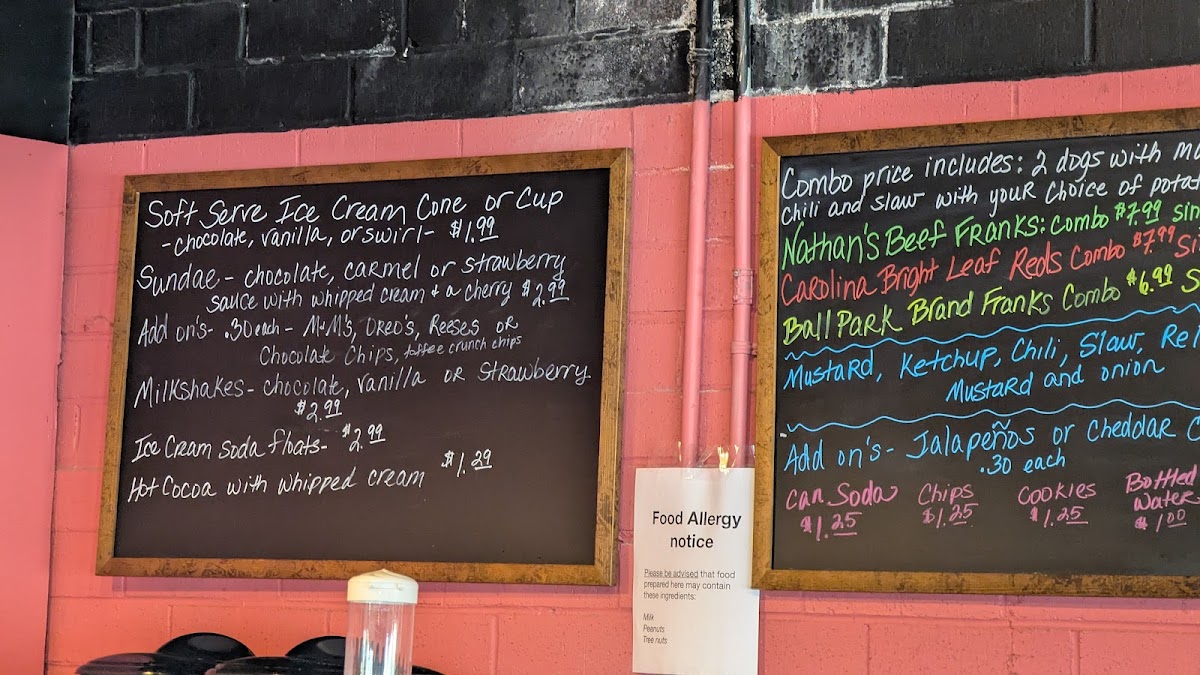 Soft Serve Ice Cream Cone or Cup
- chocolate, vanilla, or swirl - $1.99
Sundae - chocolate, carmel or strawberry
sauce with whipped cream & a cherry $2.99
Add on's - .30 each - M&M's, Oreo's, Reeses or
Chocolate Chips, toffee crunch chips
Milkshakes - chocolate, vanilla or strawberry
$2.99
Ice Cream Soda floats - $2.99
Hot Cocoa with whipped cream $1.29
Combo price includes: 2 dogs with
chili and slaw with your choice of
Nathan's Beef Franks: combo $7.99
Carolina Bright Leaf Reds Combo $7.99
Ball Park Brand Franks Combo $6.99
Mustard, Ketchup, Chili, Slaw,
Mustard and onion
Add on's - Jalapeños or Cheddar
.30 each
Can Soda Chips Cookies Bottled
Water
$1.25 $1.25 $1.25 $1.00
Food Allergy
notice
Please be advised that food
prepared here may contain
these ingredients:
Milk
Peanuts
Tree nuts